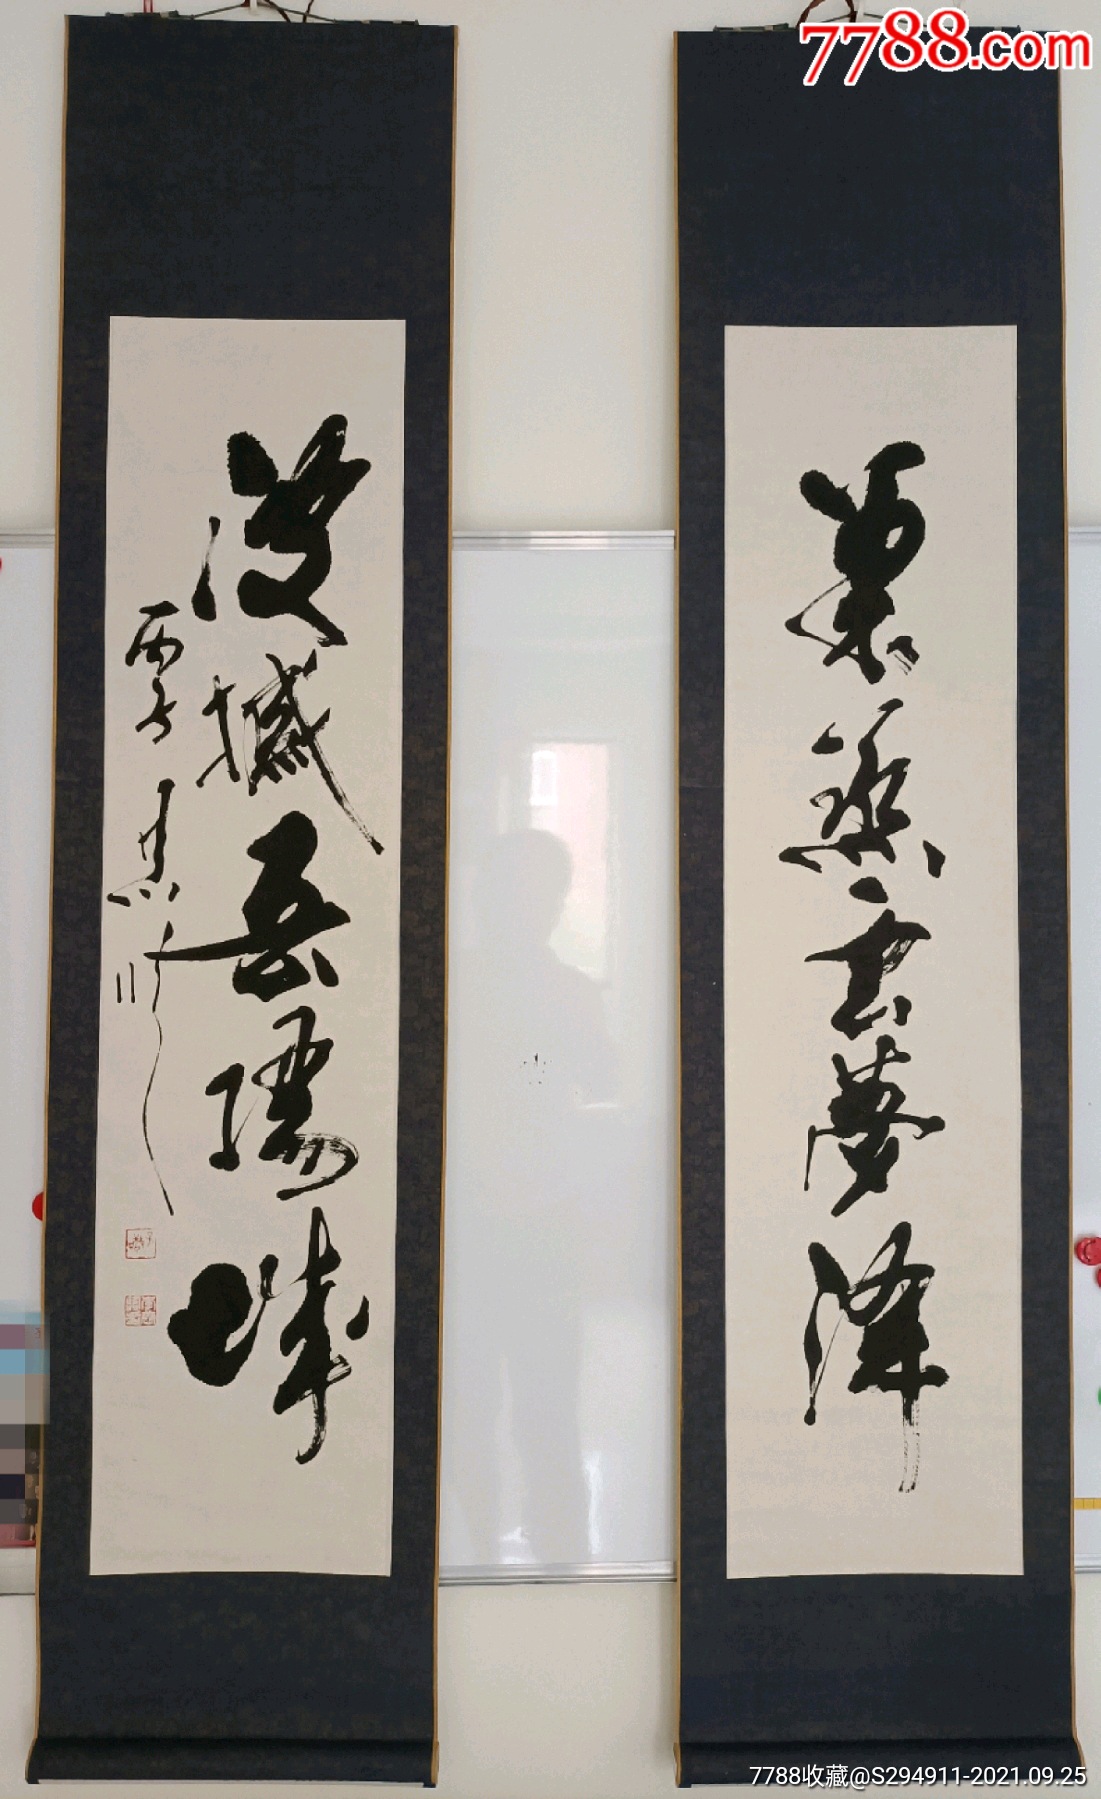 气蒸云梦泽
波撼岳阳城
丙子
7788.com
7788收藏@S294911-2021.09.25